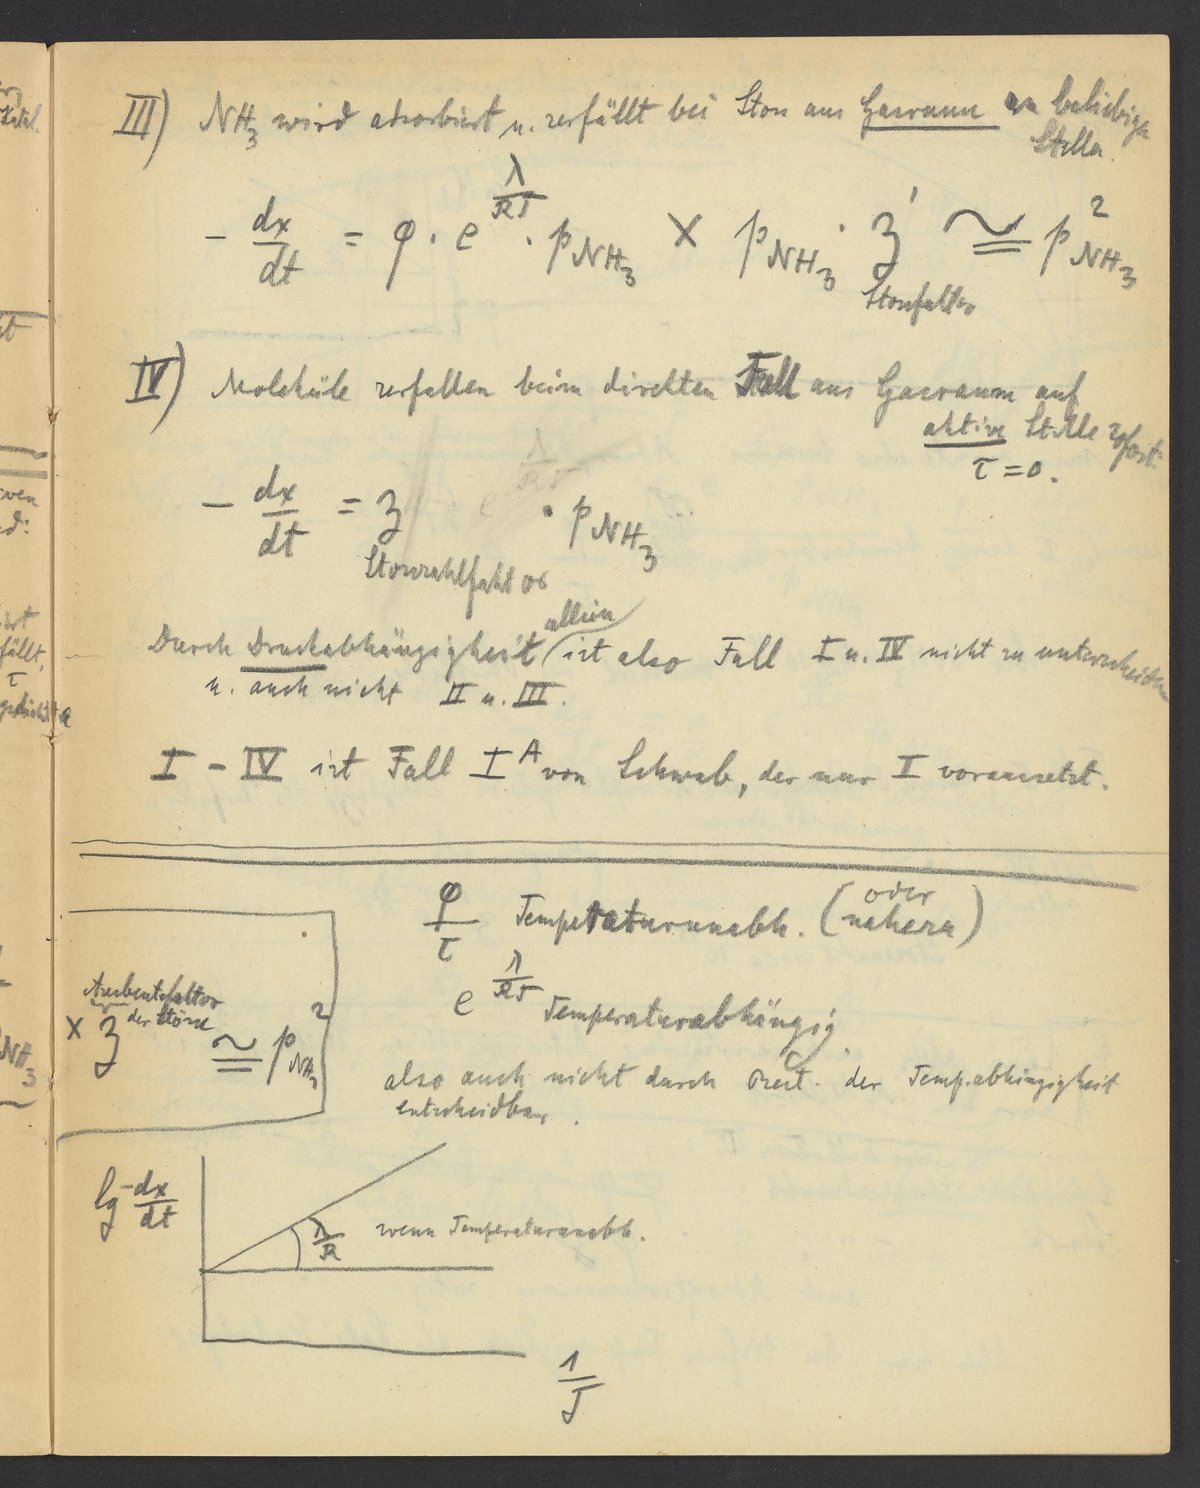 III) NH3 wird adsorbiert u. zerfällt bei Stoss aus Gasraum an beliebige
Stelle.
- dx/dt = φ · e^(λ/RT) · p_NH3 × p_NH3 · z' ≅ p²_NH3
Stossfaktor
IV) Moleküle zerfallen beim direkten Fall aus Gasraum auf
aktive Stelle sofort.
τ = 0.
- dx/dt = z · p_NH3
Stosszahl
Durch Druckabhängigkeit allein ist also Fall I u. IV nicht zu unterscheiden
u. auch nicht II u. III.
I - IV ist Fall I^A von Schwab, der nur I voraussetzt.
φ/τ Temperaturunabh. (oder nahezu)
e^(λ/RT) Temperaturabhängig
Ausbeutefaktor
der Stösse
× z ≅ p²_NH3
also auch nicht durch der Temp.abhängigkeit
entscheidbar.
lg -dx/dt
λ/R wenn Temperaturunabh.
1/T